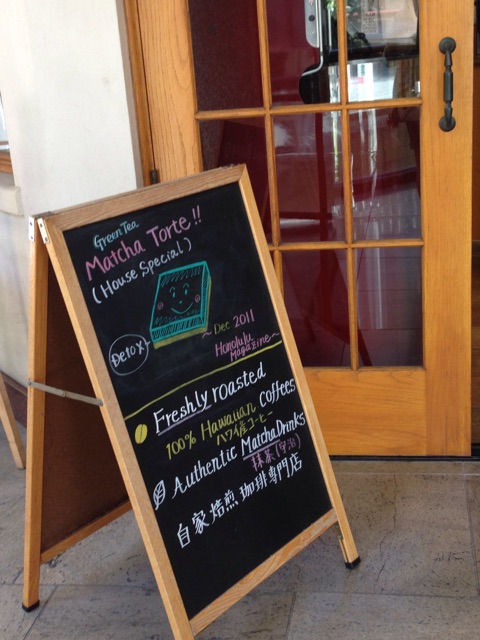 Green Tea
Matcha Torte!!
(House Special)
Detox
~ Dec 2011
Honolulu
Magazine ~
Freshly roasted
100% Hawaiian Coffees
ハワイ産コーヒー
Authentic Matcha Drinks
抹茶(宇治)
自家焙煎珈琲専門店